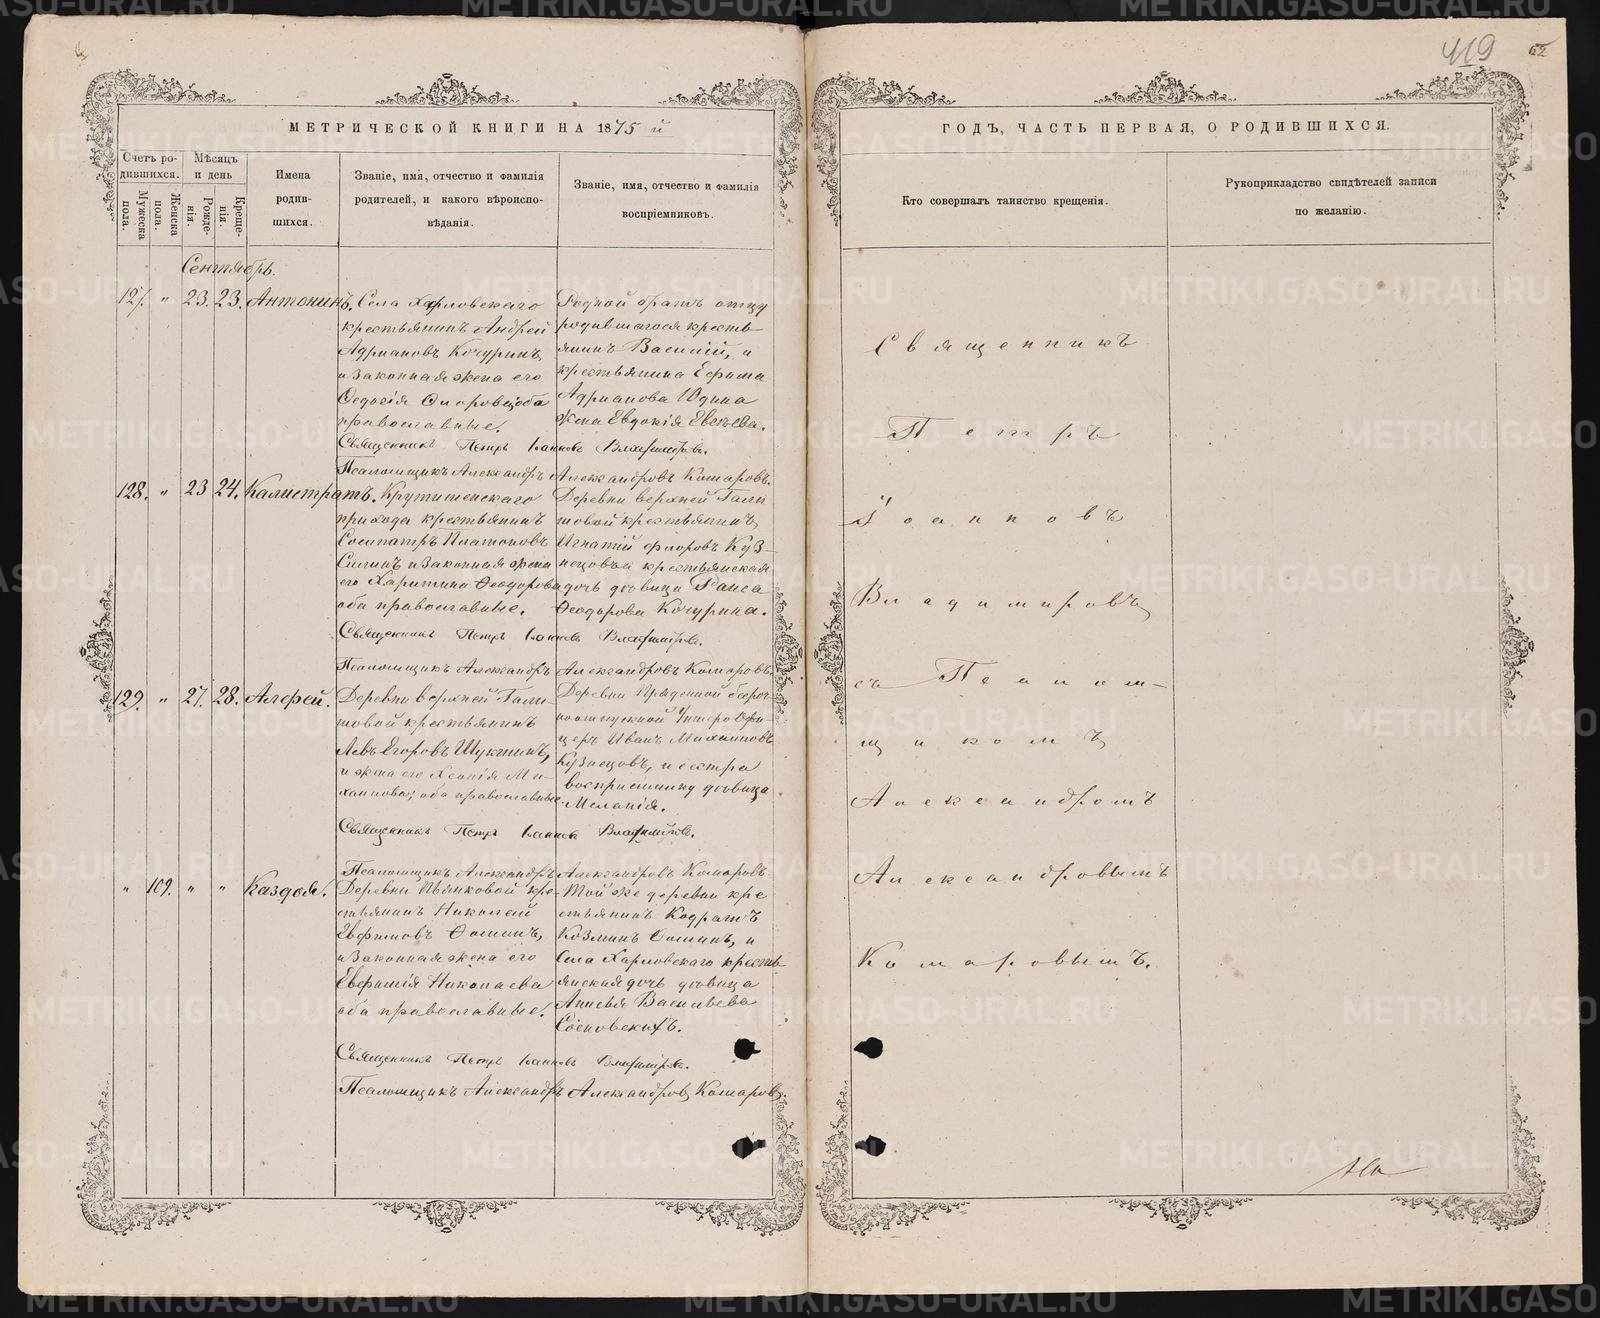 419
62
МЕТРИЧЕСКОЙ КНИГИ НА 1875 й
ГОДЪ, ЧАСТЬ ПЕРВАЯ, О РОДИВШИХСЯ.
Счетъ родившихся.
Мужеска пола.
Женска пола.
Мѣсяцъ и день
Рожденія.
Крещенія.
Имена родившихся.
Званіе, имя, отчество и фамилія
родителей, и какого вѣроиспо-
вѣданія.
Званіе, имя, отчество и фамилія
воспріемниковъ.
Кто совершалъ таинство крещенія.
Рукоприкладство свидѣтелей записи
по желанію.
Сентябрь.
127. " 23. 23. Антонинъ.
Села Харловскаго
крестьянинъ Андрей
Адриановъ Кочуринъ,
и законная жена его
Ѳедосія оба
православные.
Родной братъ отцу
родившагося кресть-
янинъ Василій, и
крестьянина Ефима
Адрианова Юдина
жена Евдокія
Священникъ Петръ Іоанновъ Владиміровъ.
Псаломщикъ Александръ Александровъ Комаровъ.
128. " 23 24. Калистратъ.
Крутишенскаго
прихода крестьянинъ
Сосипатръ Платоновъ
Силинъ и законная жена
его Харитина Ѳеодорова
оба православные.
Деревни верхней
крестьянинъ
Игнатій Флоровъ Куз-
нецовъ и крестьянская
дочь дѣвица Раиса
Ѳеодорова Кочурина.
Священникъ Петръ Іоанновъ Владиміровъ.
Псаломщикъ Александръ Александровъ Комаровъ.
129. " 27. 28. Алфей.
Деревни верхней
крестьянинъ
Левъ Егоровъ
и жена его Хеонія Ми-
хаилова; оба православные.
Деревни безсроч-
ноотпускной Унтеръ Офи-
церъ Иванъ Михаиловъ
Кузнецовъ, и сестра
воспріемнику дѣвица
Меланія.
Священникъ Петръ Іоанновъ Владиміровъ.
Псаломщикъ Александръ Александровъ Комаровъ.
" 109. " " Каздоя.
Деревни кре-
стьянинъ Николай
Евфимовъ Ѳоминъ,
и законная жена его
Евфимія Николаева
оба православные.
Той же деревни кре
стьянинъ Кодратъ
Козминъ Ѳоминъ, и
Села Харловскаго кресть-
янская дочь дѣвица
Анисья Васильева
Сосновскихъ.
Священникъ Петръ Іоанновъ Владиміровъ.
Псаломщикъ Александръ Александровъ Комаровъ.
Священникъ
Петръ
Іоанновъ
Владиміровъ
съ Псалом-
щикомъ
Александромъ
Александровымъ
Комаровымъ.
METRIKI.GASO-URAL.RU